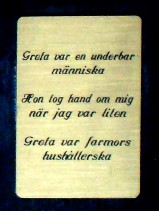 Greta var en underbar
människa
Hon tog hand om mig
när jag var liten
Greta var farmors
hushållerska